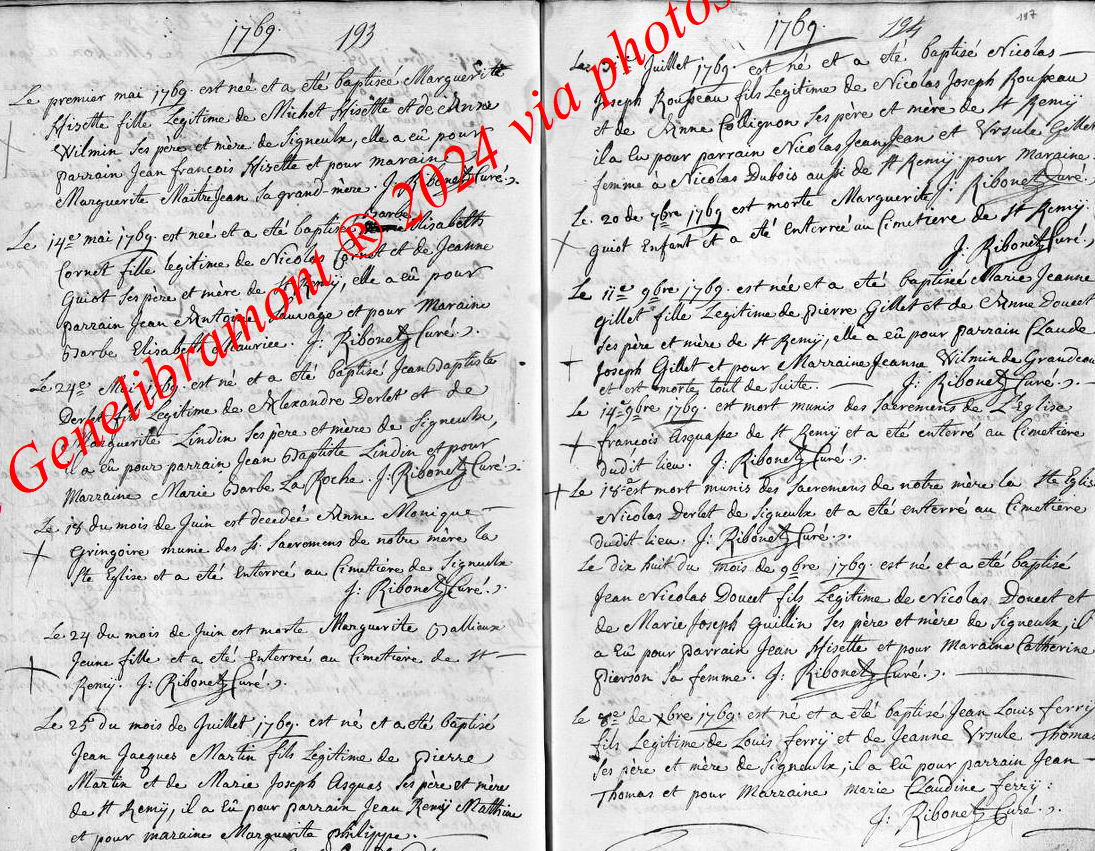 1769. 193
Le premier mai 1769. est née et a été baptisée Marguerite
Hisette fille Legitime de Michel Hisette et de Anne
Wilmin ses pere et mère de Signeulx, elle a eû pour
parrain Jean françois Hisette et pour maraine
Marguerite MaitreJean sa grand-mère. J: Ribonet Curé.
Le 14e mai 1769. est née et a été baptisée Barbe Elisabeth
Cornet fille legitime de Nicolas Cornet et de Jeanne
Guiot ses pere et mère de St Remij, elle a eû pour
parrain Jean Antoine Sauvage et pour Maraine
Barbe Elisabeth Maurice. J: Ribonet Curé.
Le 24e Mai 1769. est né et a été baptisé Jean Baptiste
Derlet fils Legitime de Alexandre Derlet et de
Marguerite Lindin ses père et mère de Signeulx,
il a eû pour parrain Jean Baptiste Lindin et pour
Marraine Marie Barbe La Roche. J: Ribonet Curé.
Le 18 du mois de Juin est decedée Anne Monique
Gringoire munie des St. Sacremens de notre mère la
Ste Eglise et a été Enterreé au Cimetière de Signeulx
J: Ribonet Curé.
Le 24 du mois de Juin est morte Marguerite Ballieux
Jeune fille et a été Enterreé au Cimetiere de St
Remij. J: Ribonet Curé.
Le 25 du mois de Juillet 1769. est né et a été baptisé
Jean Jacques Martin fils Legitime de pierre
Martin et de Marie Joseph Asquas ses père et mère
de St Remij, il a Eû pour parrain Jean Remij Mathieu
et pour maraine Marguerite philippe.
1769. 194
197
Le Juillet 1769. est né et a été baptisé Nicolas
Joseph Roupeau fils Legitime de Nicolas Joseph Roupeau
et de Anne Collignon ses père et mère de St Remij
il a Eu pour parrain Nicolas JeanJean et Ursule Gillet
femme à Nicolas Dubois aussi de St Remij pour Maraine.
J: Ribonet Curé.
Le 20 de 7bre 1769 est morte Marguerite
guiot Enfant et a été Enterreé au Cimetiere de St Remij.
J. Ribonet Curé.
Le 11e 9bre 1769. est née et a été baptisée Marie Jeanne
Gillet fille Legitime de pierre Gillet et de Anne Doucet
ses père et mère de St Remij, elle a eû pour parrain Claude
Joseph Gillet et pour Marraine Jeanne Wilmin de Grandcou
et est morte tout de suite. J: Ribonet Curé.
Le 14e 9bre 1769. est mort munis des Sacremens de L'Eglise
françois Asquasse de St Remij et a été enterré au Cimetiere
dudit lieu. J: Ribonet Curé.
Le 18e est mort munis des Sacremens de notre mère la Ste Eglise
Nicolas Derlet de Signeulx et a été enterré au Cimetière
dudit lieu. J: Ribonet Curé.
Le dix huit du mois de 9bre 1769. est né et a été baptisé
Jean Nicolas Doucet fils Legitime de Nicolas Doucet et
de Marie Joseph Guillin ses père et mère de Signeulx, il
a Eû pour parrain Jean Hisette et pour Maraine Catherine
pierson sa femme. J: Ribonet Curé.
Le 8e de xbre 1769. est né et a été baptisé Jean Louis ferry
fils Legitime de Louis ferrij et de Jeanne Ursule Thomas
ses père et mère de Signeulx, il a Eû pour parrain Jean
Thomas et pour Marraine marie Claudine ferrij:
J: Ribonet Curé.
Genelibramont ® 2024 via photos